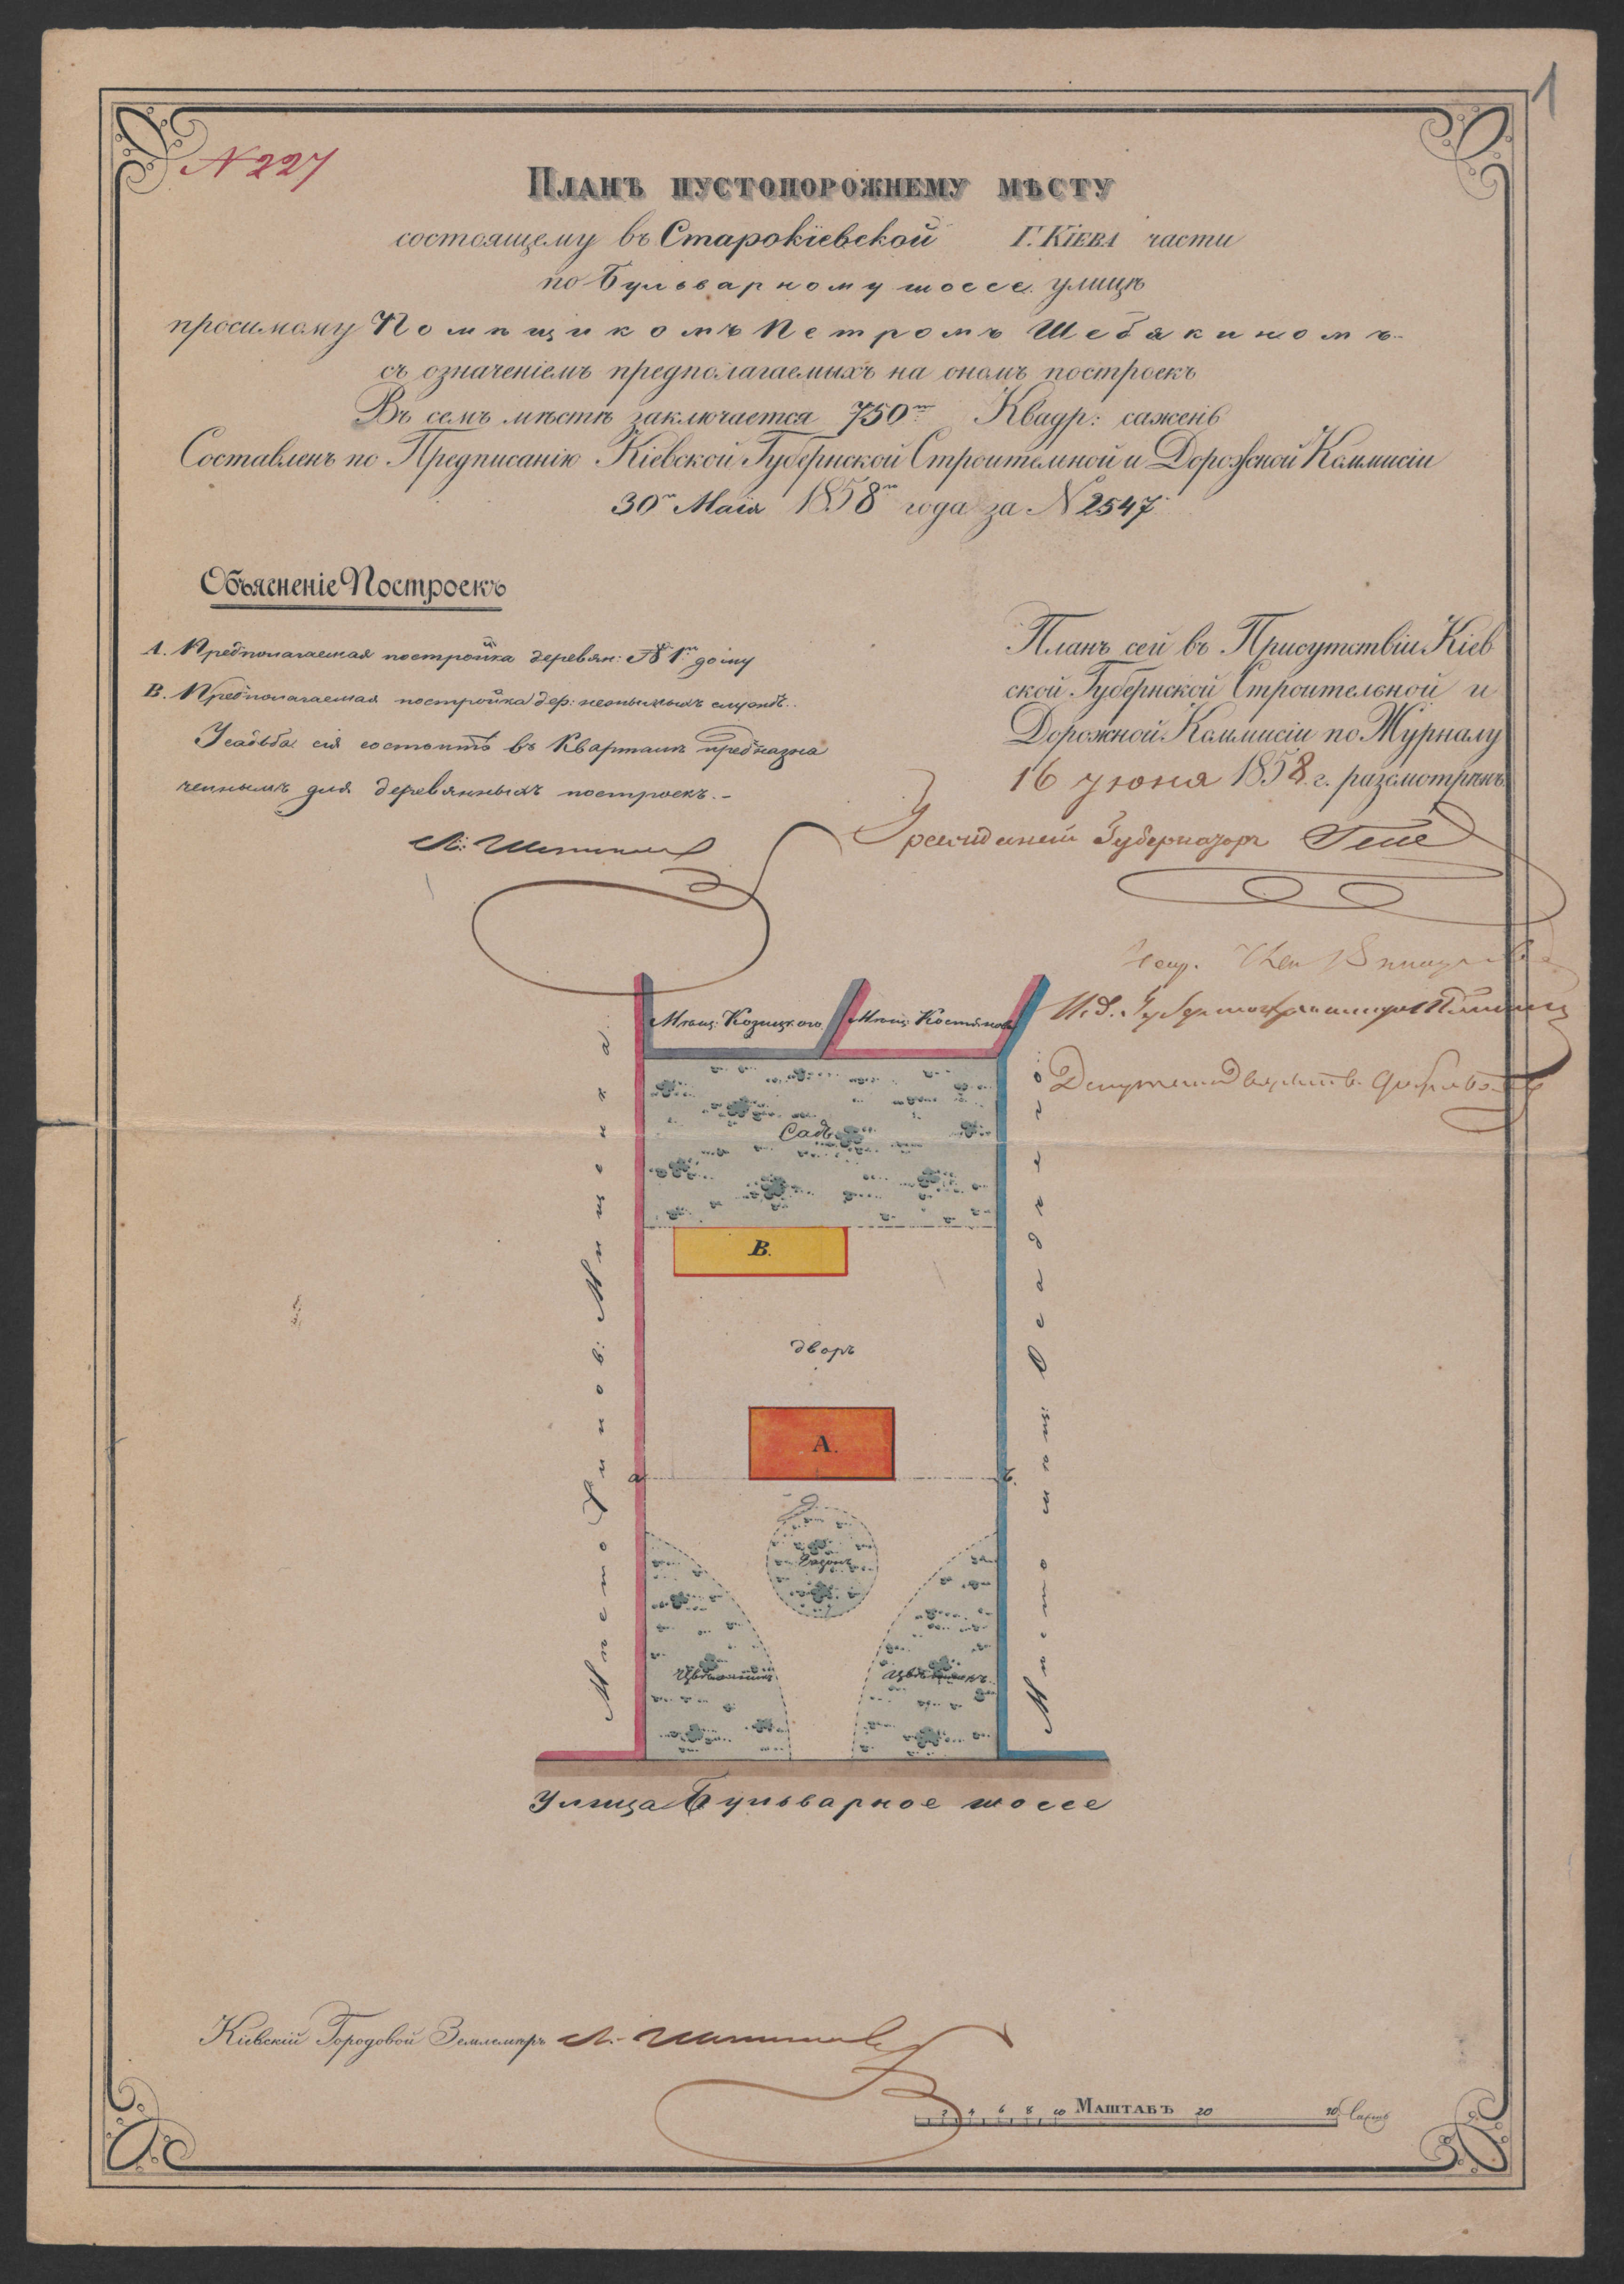 1
N 227
Планъ пустопорожнему мѣсту
состоящему въ Старокіевской Г. Кіева части
по Бульварному шоссе улицѣ
просимому Помѣщикомъ Петромъ Шебякиномъ
съ означеніемъ предполагаемыхъ на ономъ построекъ
Въ семъ мѣстѣ заключается 750 Квадр: сажень
Составленъ по Предписанію Кіевской Губернской Строительной и Дорожной Коммисіи
30 Маія 1858 года за N 2547
Объясненіе Построекъ
А. Предполагаемая постройка деревян: дому
В. Предполагаемая постройка дер: службъ.
Усадьба сія состоитъ въ Кварталѣ предназна
ченнымъ для деревянныхъ построекъ.
Планъ сей въ Присутствіи Кіев
ской Губернской Строительной и
Дорожной Коммисіи по Журналу
16 Іюня 1858 г. разсмотрѣнъ
Гражданскій Губернаторъ Гессе
Мѣщ: Козицкого
Мѣщ:
Садъ
В.
дворъ
А.
а
б.
Газонъ
Цвѣтникъ
Цвѣтникъ
Мѣсто Чинов: Мищенка
Мѣсто
Улица Бульварное шоссе
Кіевскій Городовой Землемѣръ
2 4 6 8 10 Маштабъ 20 30 Саженъ